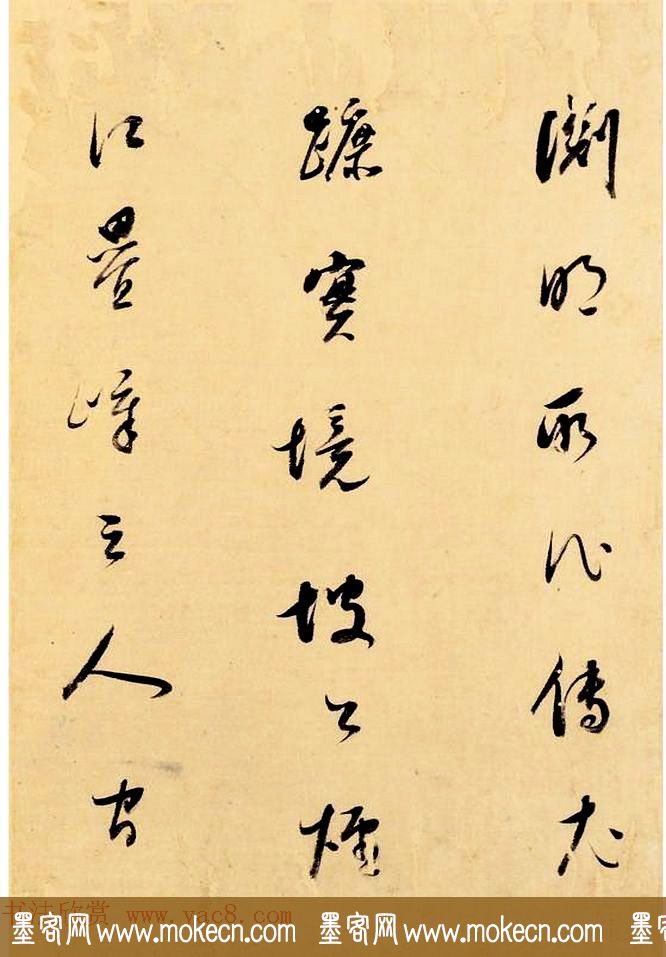 渊明所作传尤
踪实境坡公烟
江叠嶂之人间
书法欣赏 www.yac8.com
墨客网 www.mokecn.com 墨客网 www.mokecn.com